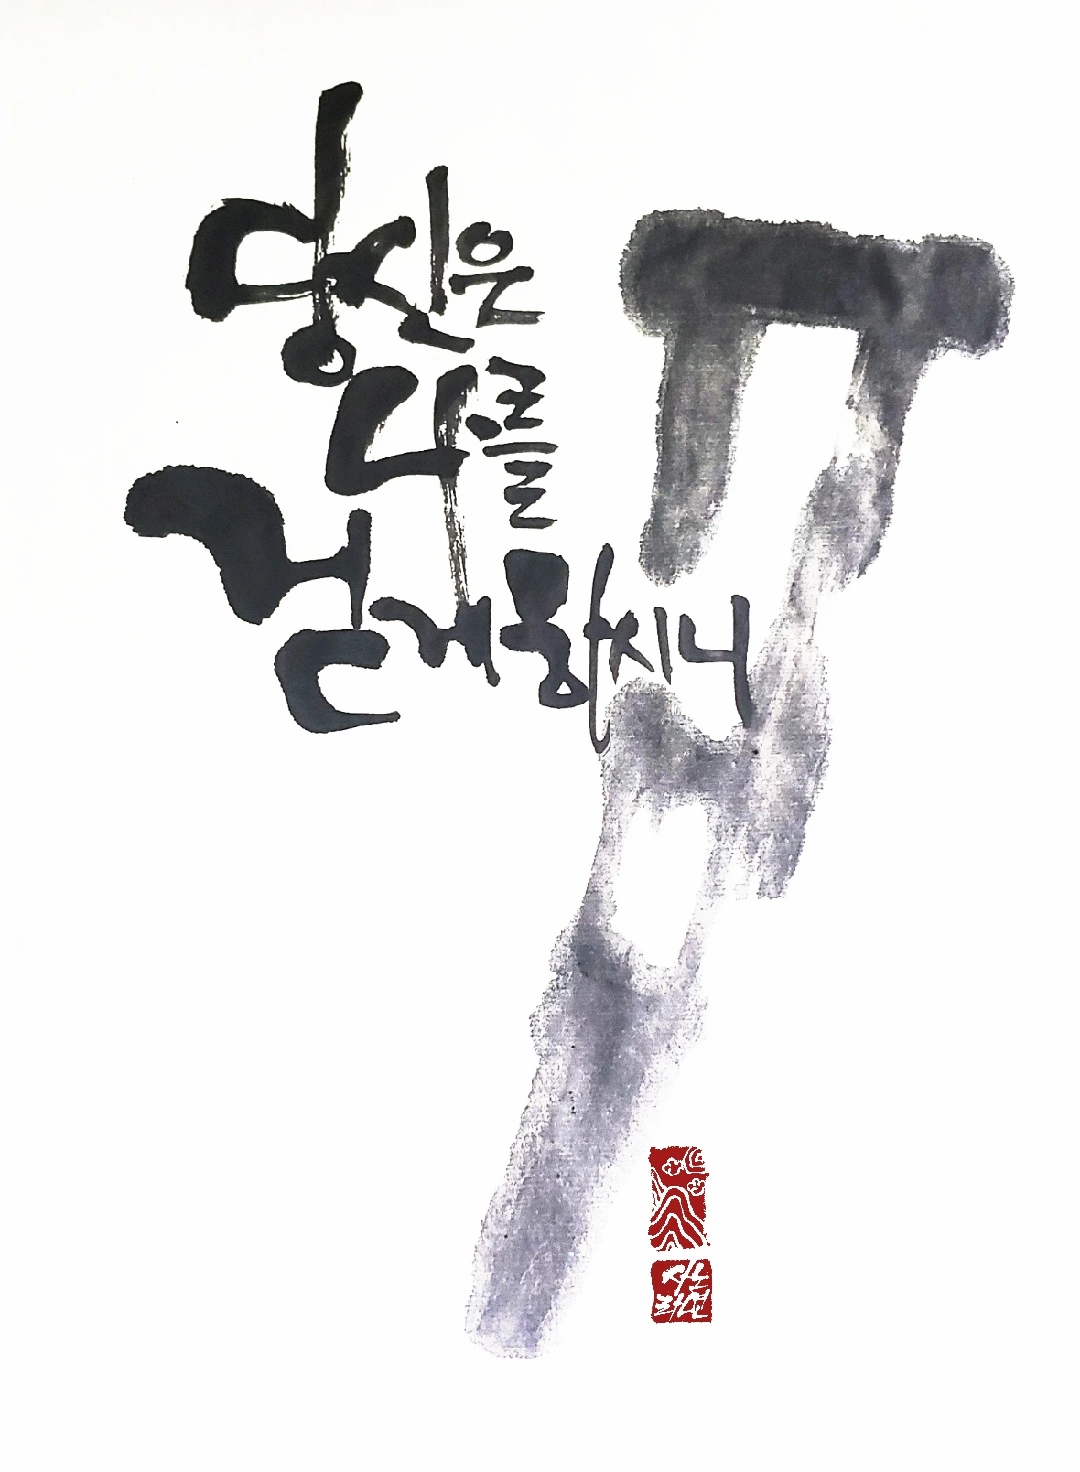 당신은
나를
걷게 하시니